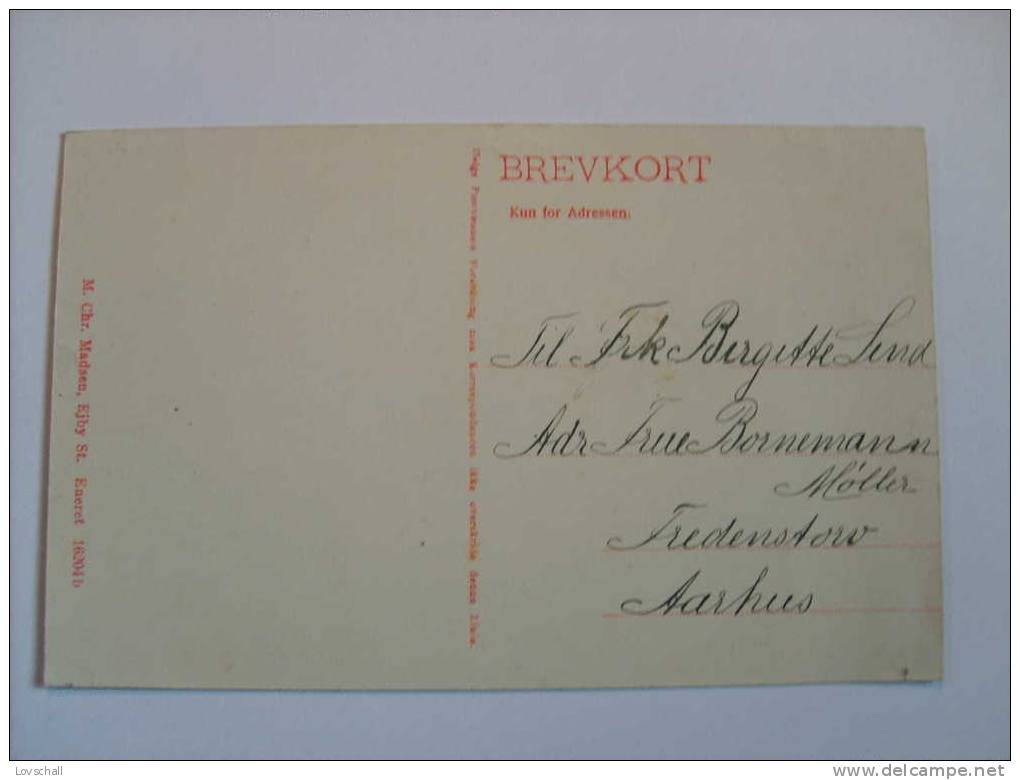 BREVKORT
Kun for Adressen.
Ifølge Postvæsenets Forordning maa Korrespondancen ikke overskride denne Linie.
M. Chr. Madsen, Ejby St. Eneret 16204 b
Til Frk Birgitte Lind
Adr Frue Bornemann
Möller
Fredenstorv
Aarhus
Lovschall
www.delcampe.net